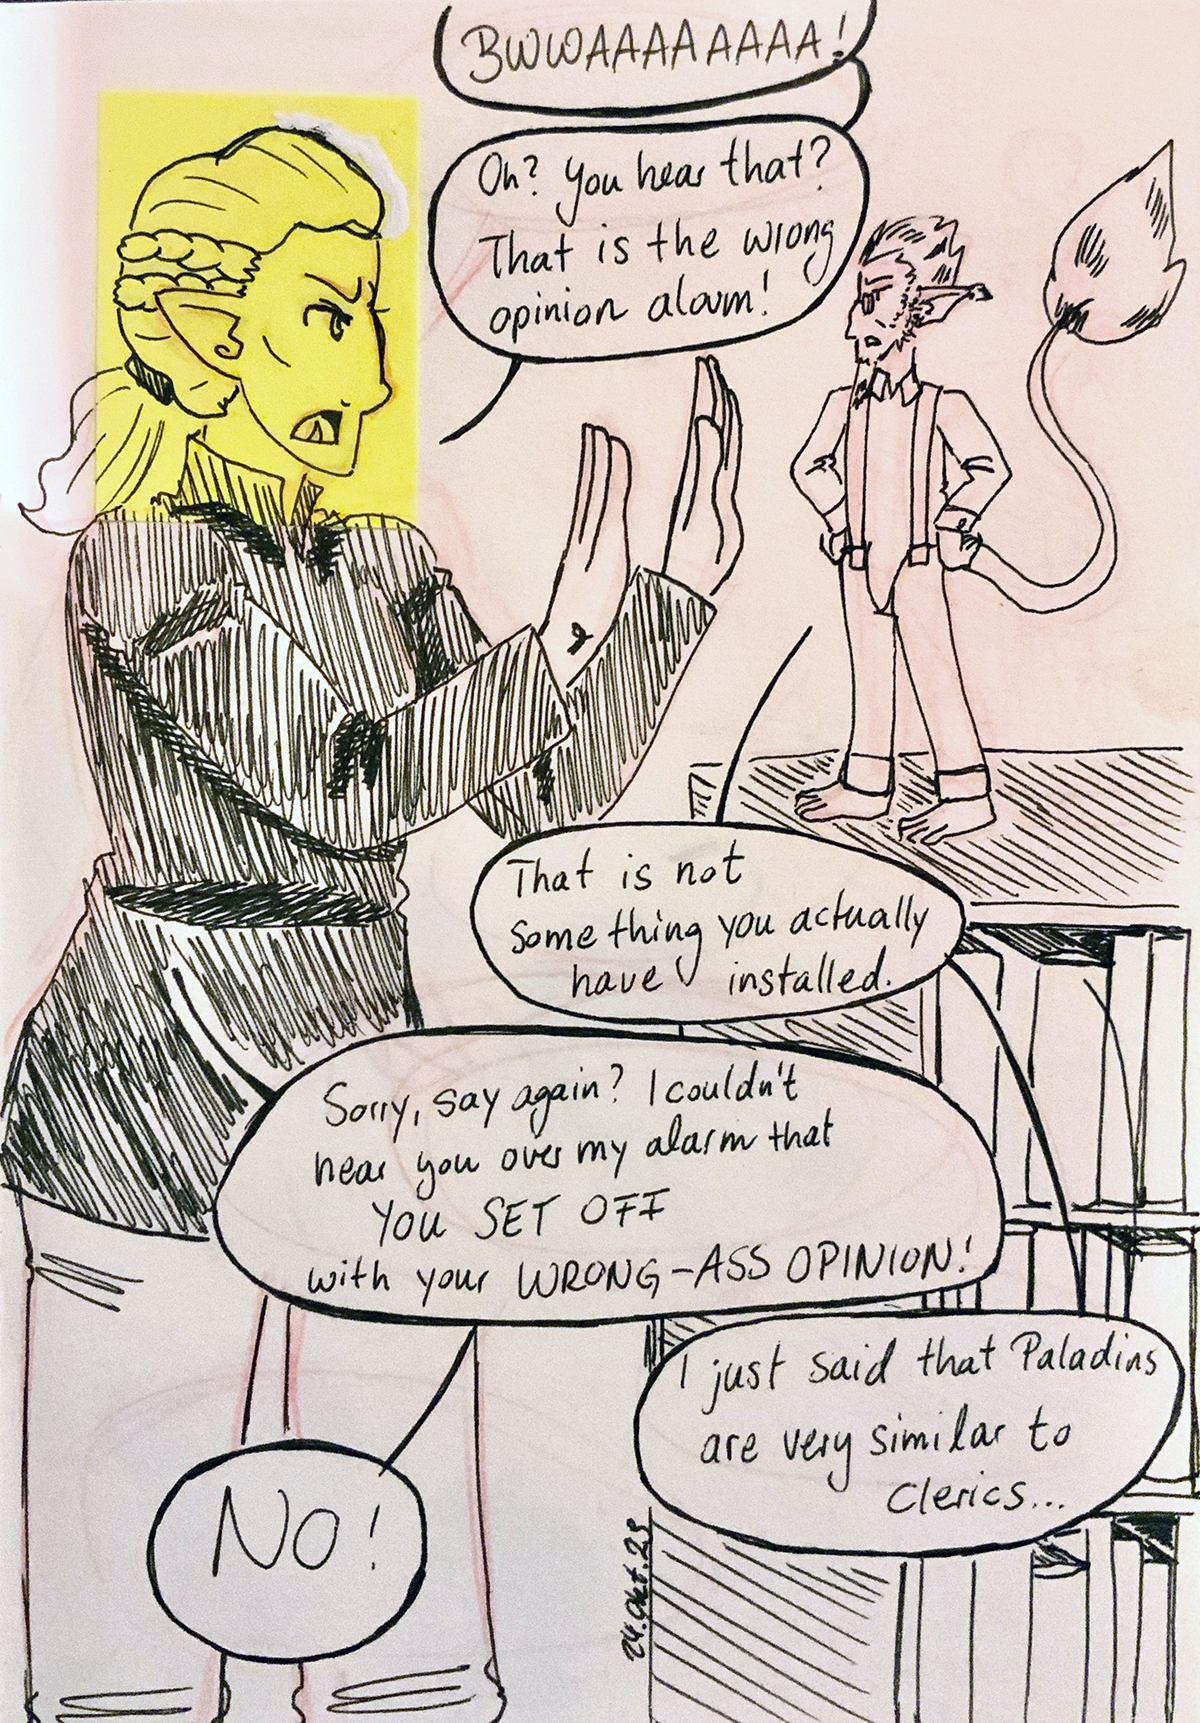 BWWAAAAAAAA!
Oh? You hear that?
That is the wrong
opinion alarm!
That is not
something you actually
have installed.
Sorry, say again? I couldn't
hear you over my alarm that
YOU SET OFF
with your WRONG-ASS OPINION!
I just said that Paladins
are very similar to
Clerics...
NO!
24.Okt.23